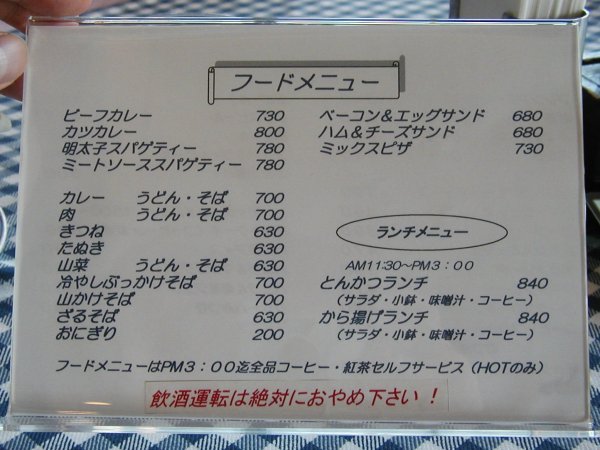 フードメニュー
ビーフカレー 730
カツカレー 800
明太子スパゲティー 780
ミートソーススパゲティー 780
カレー うどん・そば 700
肉 うどん・そば 700
きつね 630
たぬき 630
山菜 うどん・そば 630
冷やしぶっかけそば 700
山かけそば 700
ざるそば 630
おにぎり 200
ベーコン＆エッグサンド 680
ハム＆チーズサンド 680
ミックスピザ 730
ランチメニュー
AM11:30～PM3：00
とんかつランチ 840
（サラダ・小鉢・味噌汁・コーヒー）
から揚げランチ 840
（サラダ・小鉢・味噌汁・コーヒー）
フードメニューはPM3：00迄全品コーヒー・紅茶セルフサービス（HOTのみ）
飲酒運転は絶対におやめ下さい！